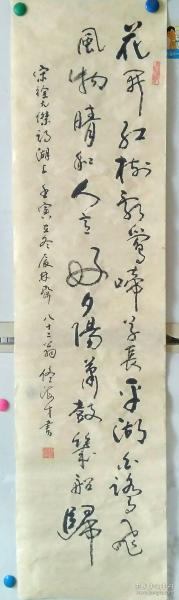 花开红树乱莺啼草长平湖白鹭飞
风物晴和人意好夕阳萧鼓几船归
宋徐元杰詩湖上壬寅立冬辰
八十二翁
书